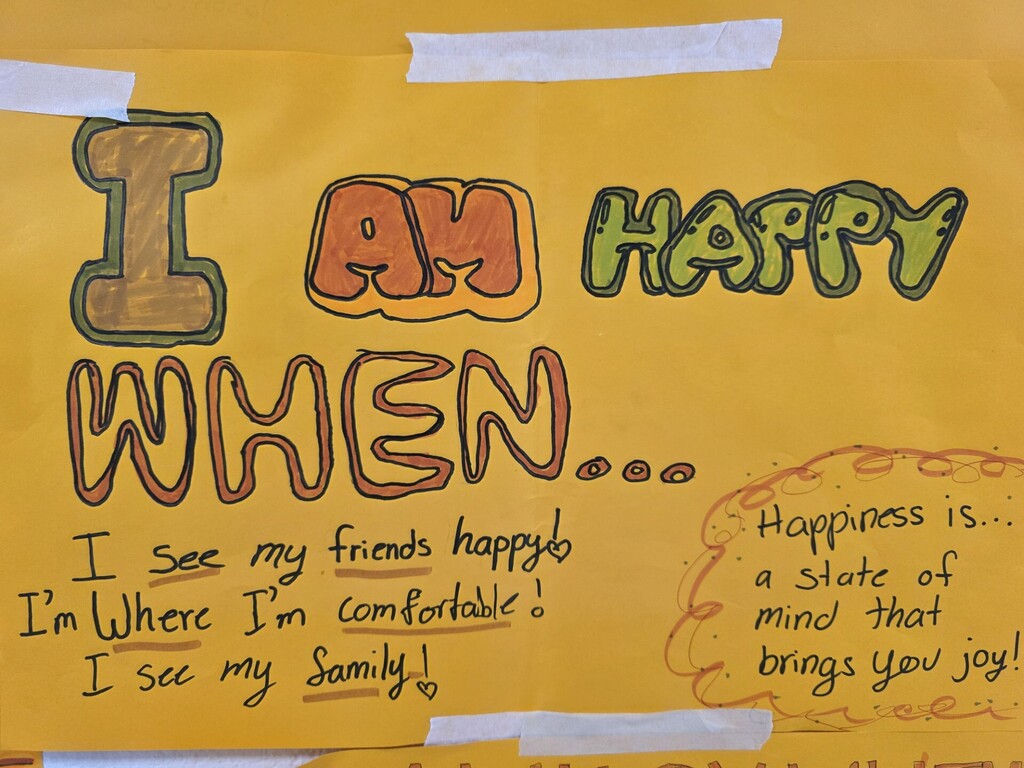 I AM HAPPY
WHEN...
I see my friends happy!
I'm Where I'm comfortable!
I see my family!
Happiness is...
a state of
mind that
brings you joy!